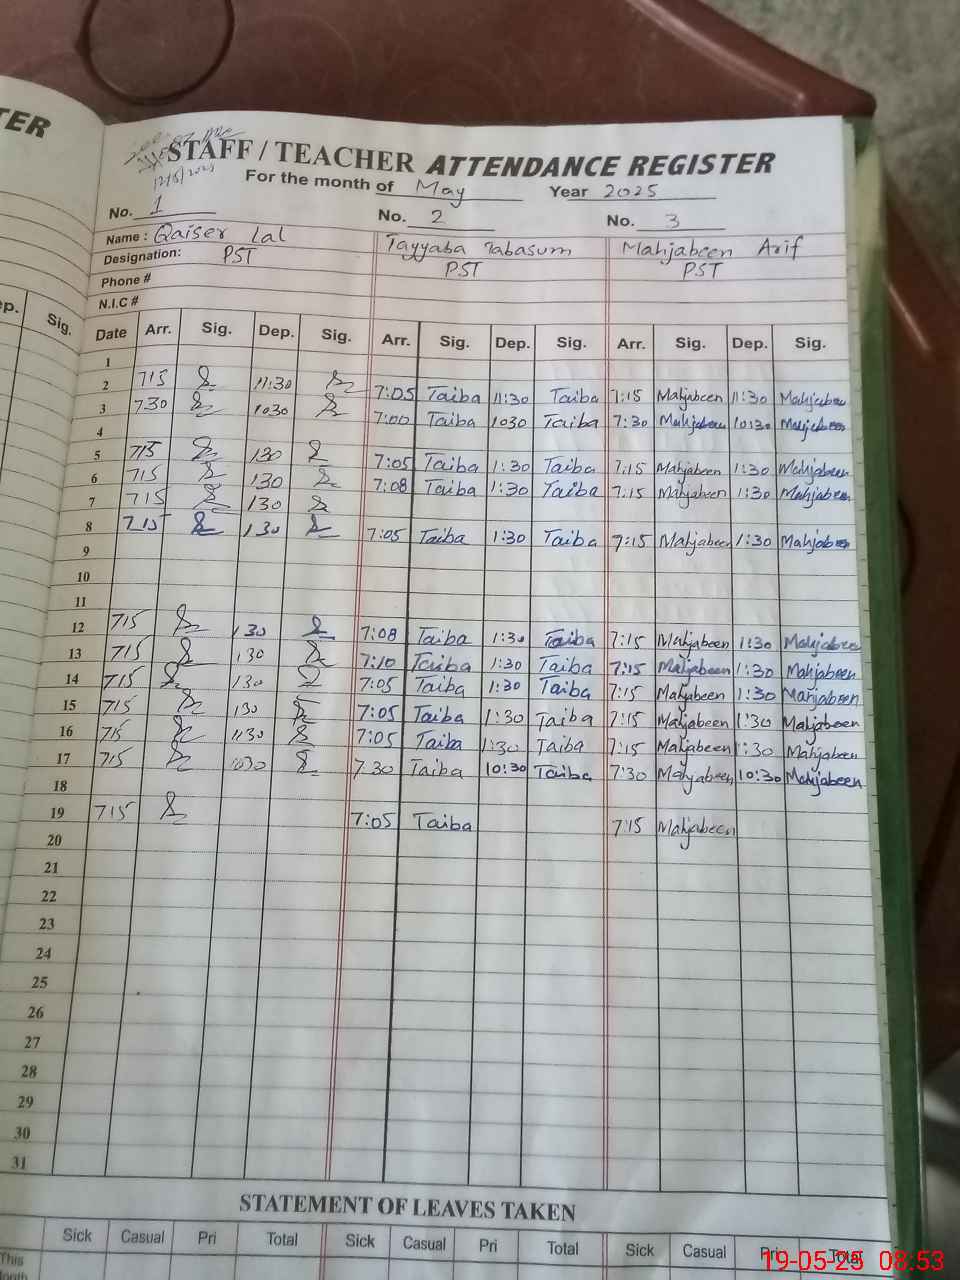 TER
STAFF / TEACHER ATTENDANCE REGISTER
12/5/2025
For the month of May Year 2025
No. 1 No. 2 No. 3
Name : Qaiser Lal Tayyaba Tabasum Mahjabeen Arif
Designation: PST PST PST
Phone #
N.I.C #
ep. Sig. Date Arr. Sig. Dep. Sig. Arr. Sig. Dep. Sig. Arr. Sig. Dep. Sig.
1
2 715 11:30 7:05 Taiba 11:30 Taiba 7:15 Mahjabeen 11:30 Mahjabeen
3 730 1030 7:00 Taiba 1030 Taiba 7:30 Mahjabeen 10:30 Mahjabeen
4
5 715 130 7:05 Taiba 1:30 Taiba 7:15 Mahjabeen 1:30 Mahjabeen
6 715 130 7:08 Taiba 1:30 Taiba 7:15 Mahjabeen 1:30 Mahjabeen
7 715 130
8 715 130 7:05 Taiba 1:30 Taiba 7:15 Mahjabeen 1:30 Mahjabeen
9
10
11
12 715 130 7:08 Taiba 1:30 Taiba 7:15 Mahjabeen 1:30 Mahjabeen
13 715 130 7:10 Taiba 1:30 Taiba 7:15 Mahjabeen 1:30 Mahjabeen
14 715 130 7:05 Taiba 1:30 Taiba 7:15 Mahjabeen 1:30 Mahjabeen
15 715 130 7:05 Taiba 1:30 Taiba 7:15 Mahjabeen 1:30 Mahjabeen
16 715 1130 7:05 Taiba 1:30 Taiba 7:15 Mahjabeen 1:30 Mahjabeen
17 715 1030 7.30 Taiba 10:30 Taiba 7:30 Mahjabeen 10:30 Mahjabeen
18
19 715 7:05 Taiba 7:15 Mahjabeen
20
21
22
23
24
25
26
27
28
29
30
31
STATEMENT OF LEAVES TAKEN
Sick Casual Pri Total Sick Casual Pri Total Sick Casual Pri Total
This
19-05-25 08:53